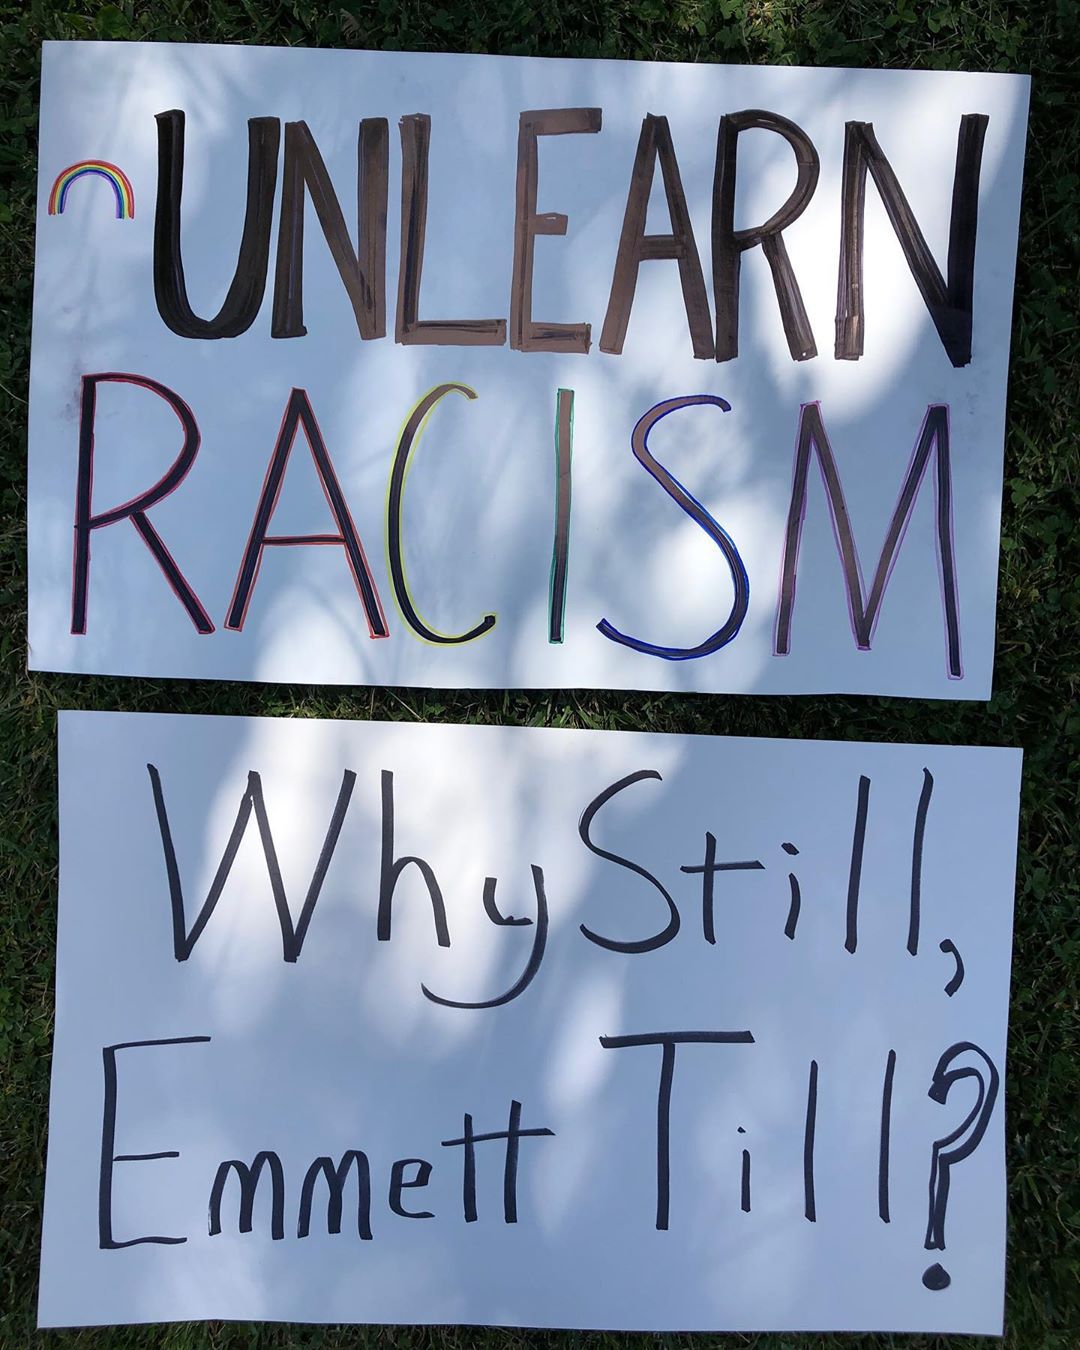 UNLEARN
RACISM
Why Still,
Emmett Till?